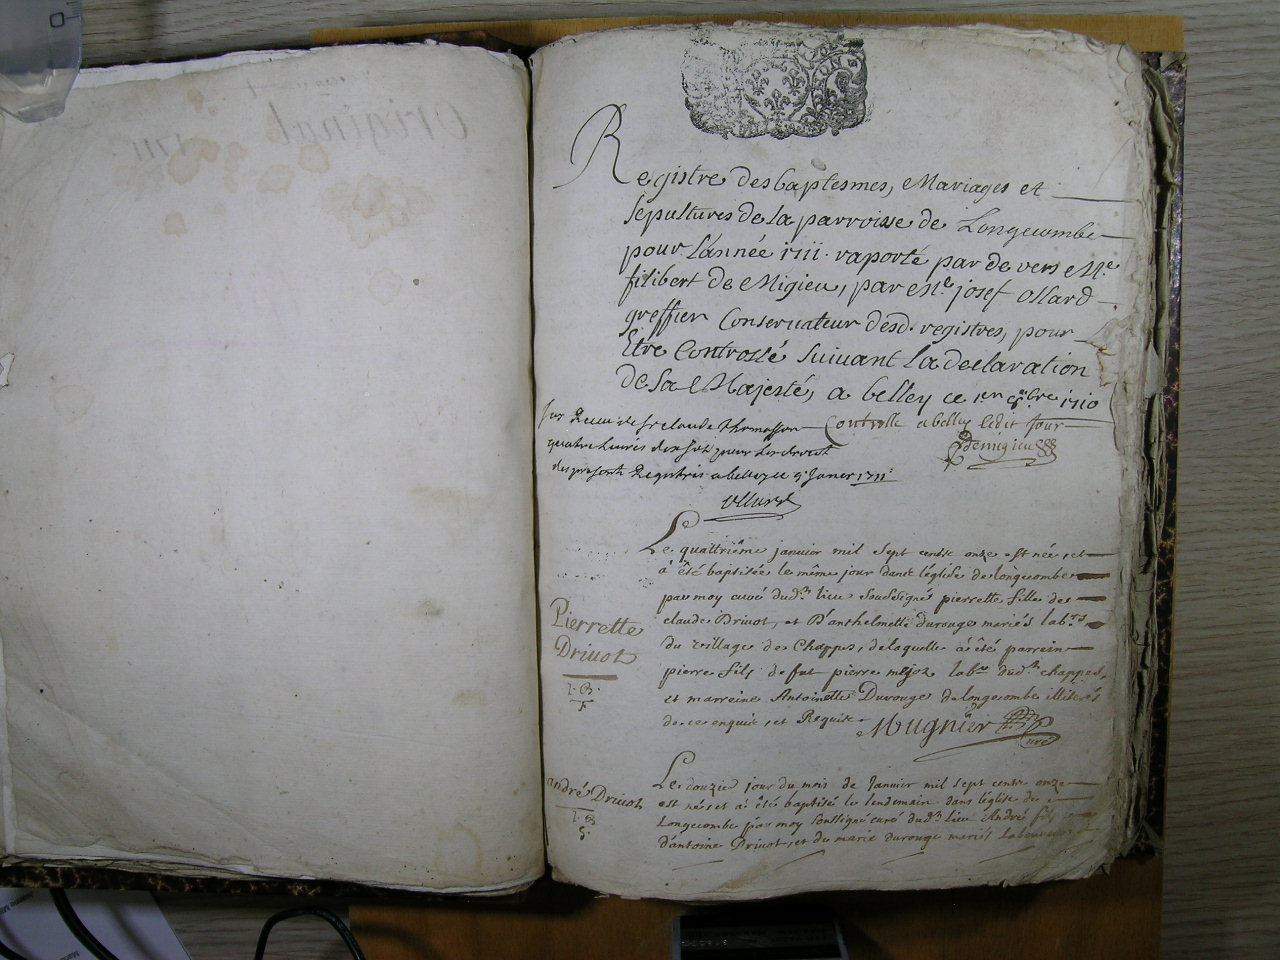 Registre des baptesmes, Mariages et
sepultures de la parroisse de Longecombe
pour l'année 1711. raporté par de vers Me
filibert de Migieu, par Me josef Ollard
greffier Conseruateur desd. registres, pour
Estre Controllé suiuant la declaration
de sa Majesté, a belley ce 1er 9bre 1710
Controllé a belley ledit jour
demigieu
des presents Registres a belley ce 9e Janvier 1711
Ollard
Le quattriême januier mil sept cents onze est née, et
à êté baptisée le même jour dans l'église de longecombe
par moy curé dudt lieu soussigné pierrette fille de
claude Driuot, et D'anthelmette durouge mariés labrs
du village de Chappes, de laquelle à êté parrein
pierre fils de fut pierre labr dudt chappes,
et marreine Antoinette Durouge de longecombe illiterés
de ce enquis, et Requis
Mugnier curé
Pierrette
Driuot
1. B.
f
Le douzie jour du mois de Januir mil sept cents onze
est né, et à êté baptisé le lendemain dans l'église de
Longecombe par moy soussigné curé dudt lieu André fils
d'antoine Driuot, et de marie durouge mariés laboureurs
andré Driuot
1. B
g.
original
1711